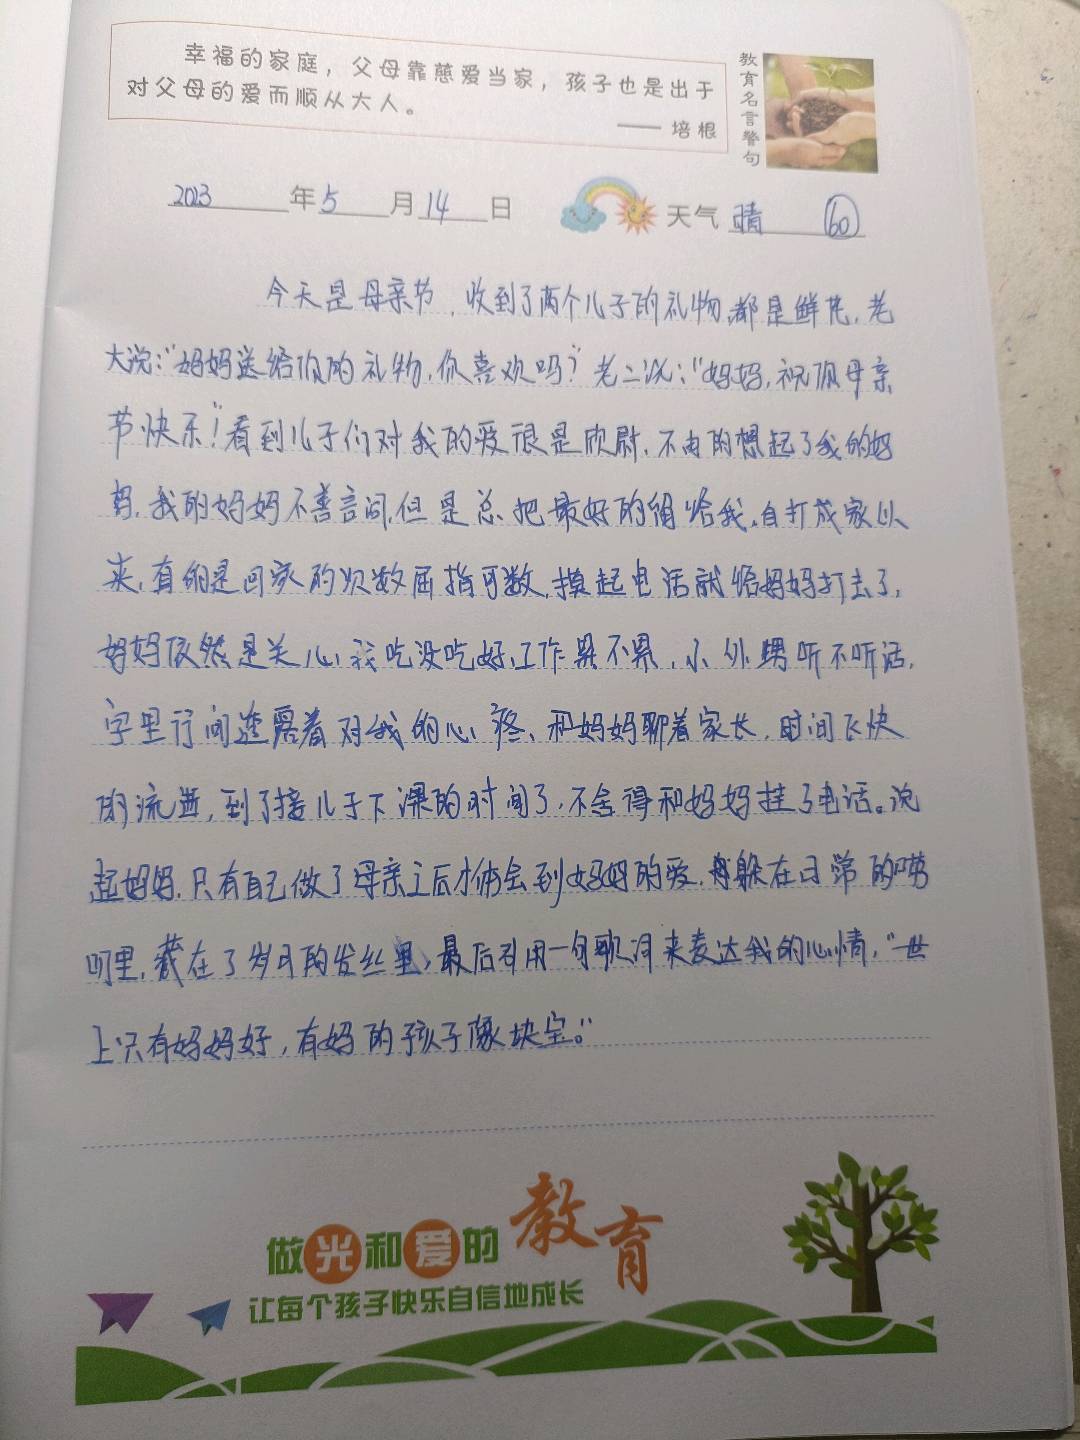 幸福的家庭，父母靠慈爱当家，孩子也是出于
对父母的爱而顺从大人。
——培根
教育名言警句
2023年5月14日
天气 晴 60
今天是母亲节，收到了两个儿子的礼物，都是鲜花，老
大说：“妈妈送给你的礼物，你喜欢吗？”老二说：“妈妈，祝你母亲
节快乐！”看到儿子们对我的爱很是欣慰，不由的想起了我的妈
妈，我的妈妈不善言词，但是总把最好的留给我。自打成家以
来，真的是回家的次数屈指可数，摸起电话就给妈妈打去了，
妈妈依然是关心我吃没吃好、工作累不累，小外甥听不听话，
字里行间透露着对我的心疼、和妈妈聊着家长，时间飞快
的流逝，到了接儿子下课的时间了，不舍得和妈妈挂了电话。说
起妈妈，只有自己做了母亲之后才体会到妈妈的爱，躲在日常的唠
叨里，藏在了岁月的发丝里，最后引用一句歌词来表达我的心情，“世
上只有妈妈好，有妈的孩子像块宝。”
做光和爱的教育
让每个孩子快乐自信地成长